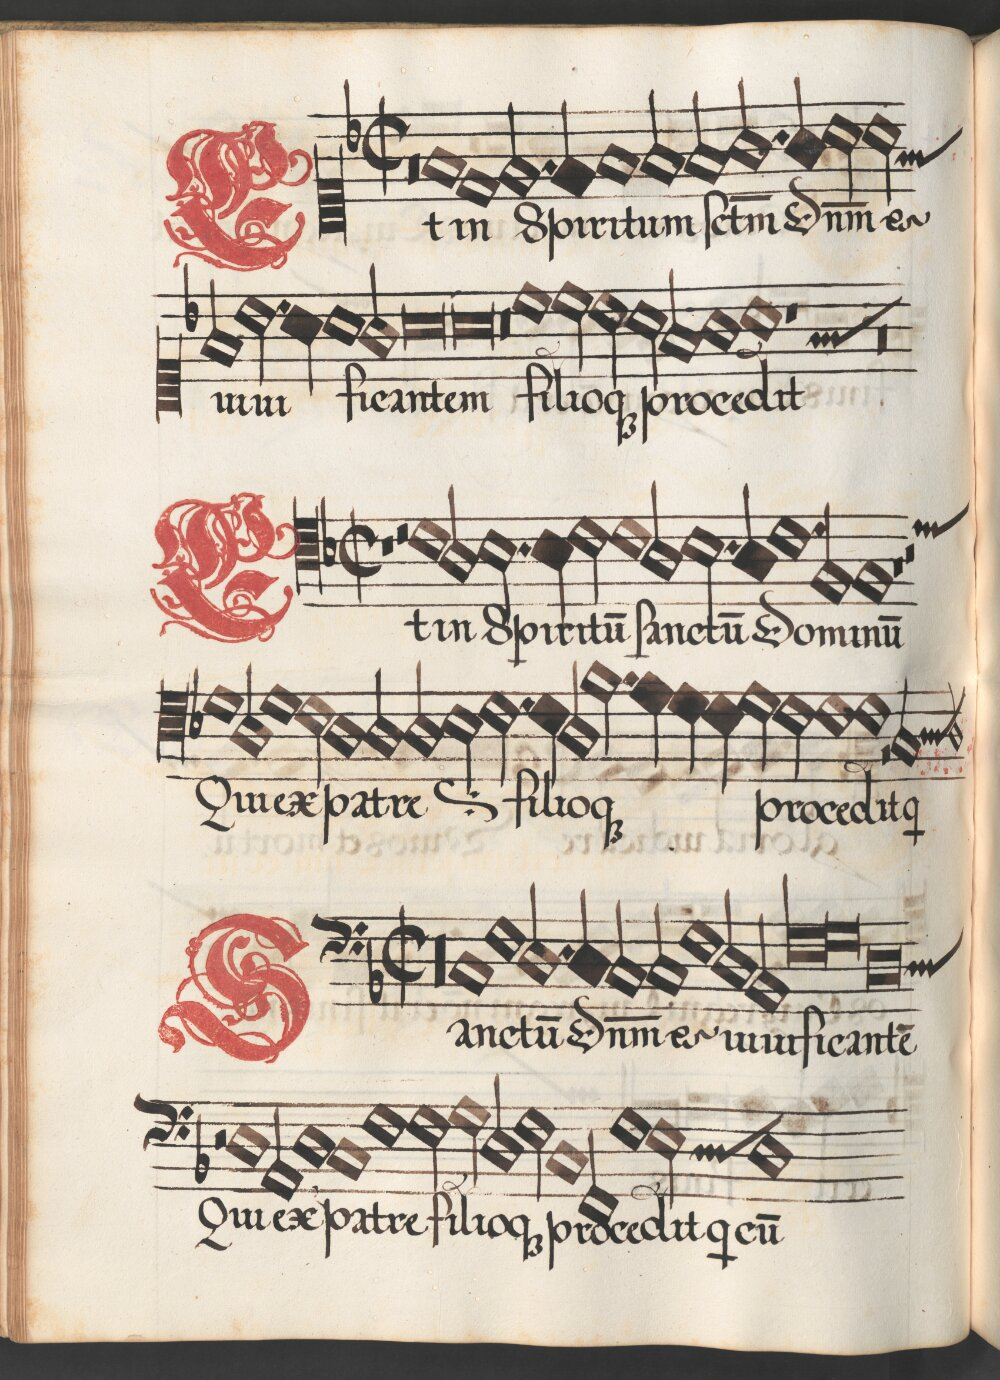 Et in Spiritum sctm̄ Dn̄m et
uiui ficantem filioqꝫ procedit
Et in Spiritū sanctū Dominū
Qui ex patre filioqꝫ procedit q
Sanctū Dn̄m et uiuificantē
Qui ex patre filioqꝫ procedit q cū